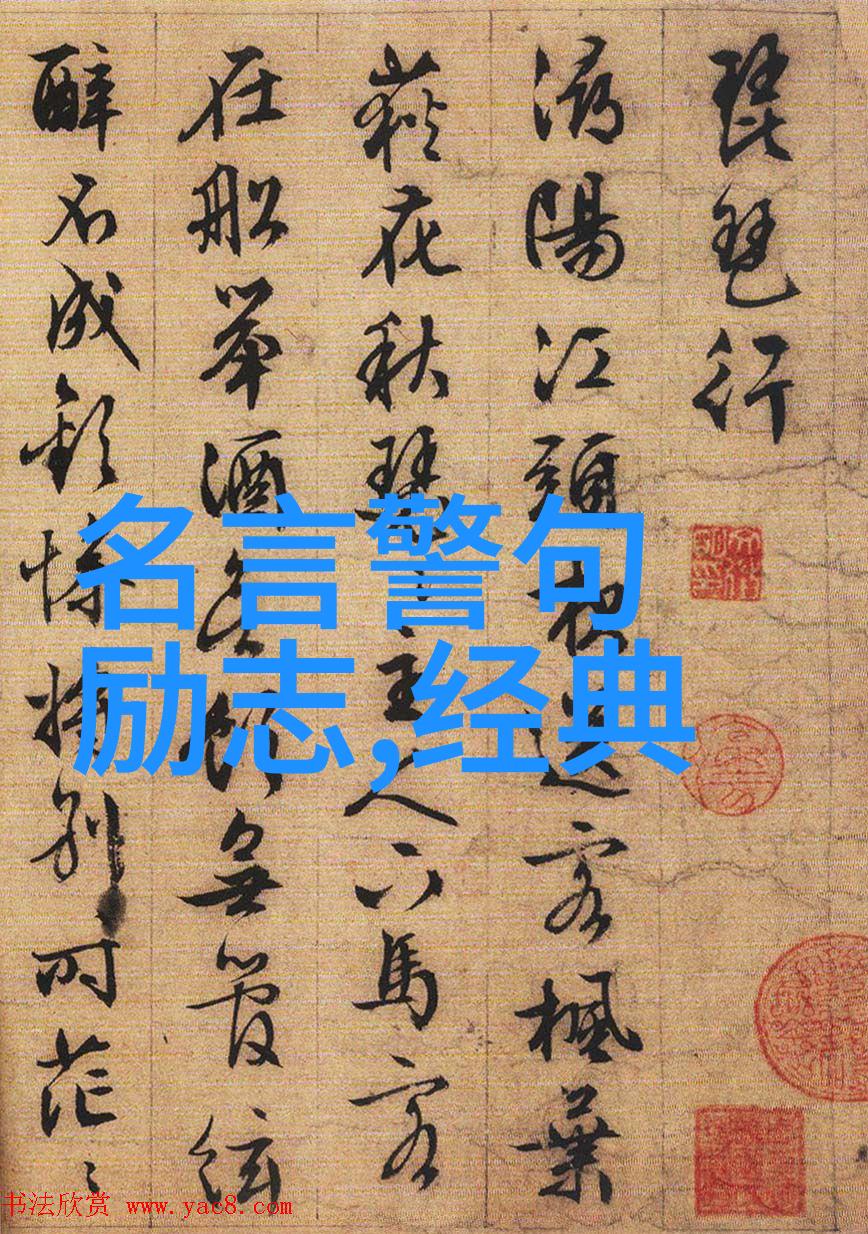 琵琶行
潯陽江頭夜送客楓葉
荻花秋瑟〻主人下馬客
在船舉酒欲飲無管絃
醉不成歡慘將別時茫〻
名言警句
励志,经典
书法欣赏 www.yac8.com